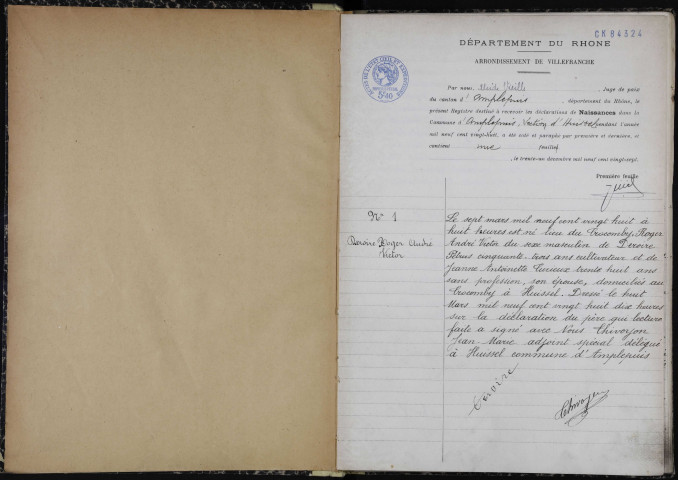 CK 84324
DÉPARTEMENT DU RHONE
ARRONDISSEMENT DE VILLEFRANCHE
Par nous, , Juge de paix
du canton d'Amplepuis , département du Rhône, le
présent Registre destiné à recevoir les déclarations de Naissances dans la
Commune d'Amplepuis, Section d'Huissel pendant l'année
mil neuf cent vingt-huit, a été coté et paraphé par première et dernière, et
contient une feuillet
, le trente-un décembre mil neuf cent vingt-sept.
Première feuille
N° 1
Deroire Roger André
Victor
Le sept mars mil neuf cent vingt huit à
huit heures est né lieu du Crocomby, Roger
André Victor du sexe masculin de Deroire
Pétrus cinquante-trois ans cultivateur et de
Jeanne Antoinette trente huit ans
sans profession, son épouse, domiciliés au
Crocomby à Huissel. Dressé le huit
Mars mil neuf cent vingt huit dix heures
sur la déclaration du père qui lecture
faite a signé avec Nous Thivoyon
Jean-Marie adjoint spécial délégué
à Huissel commune d'Amplepuis
Deroire